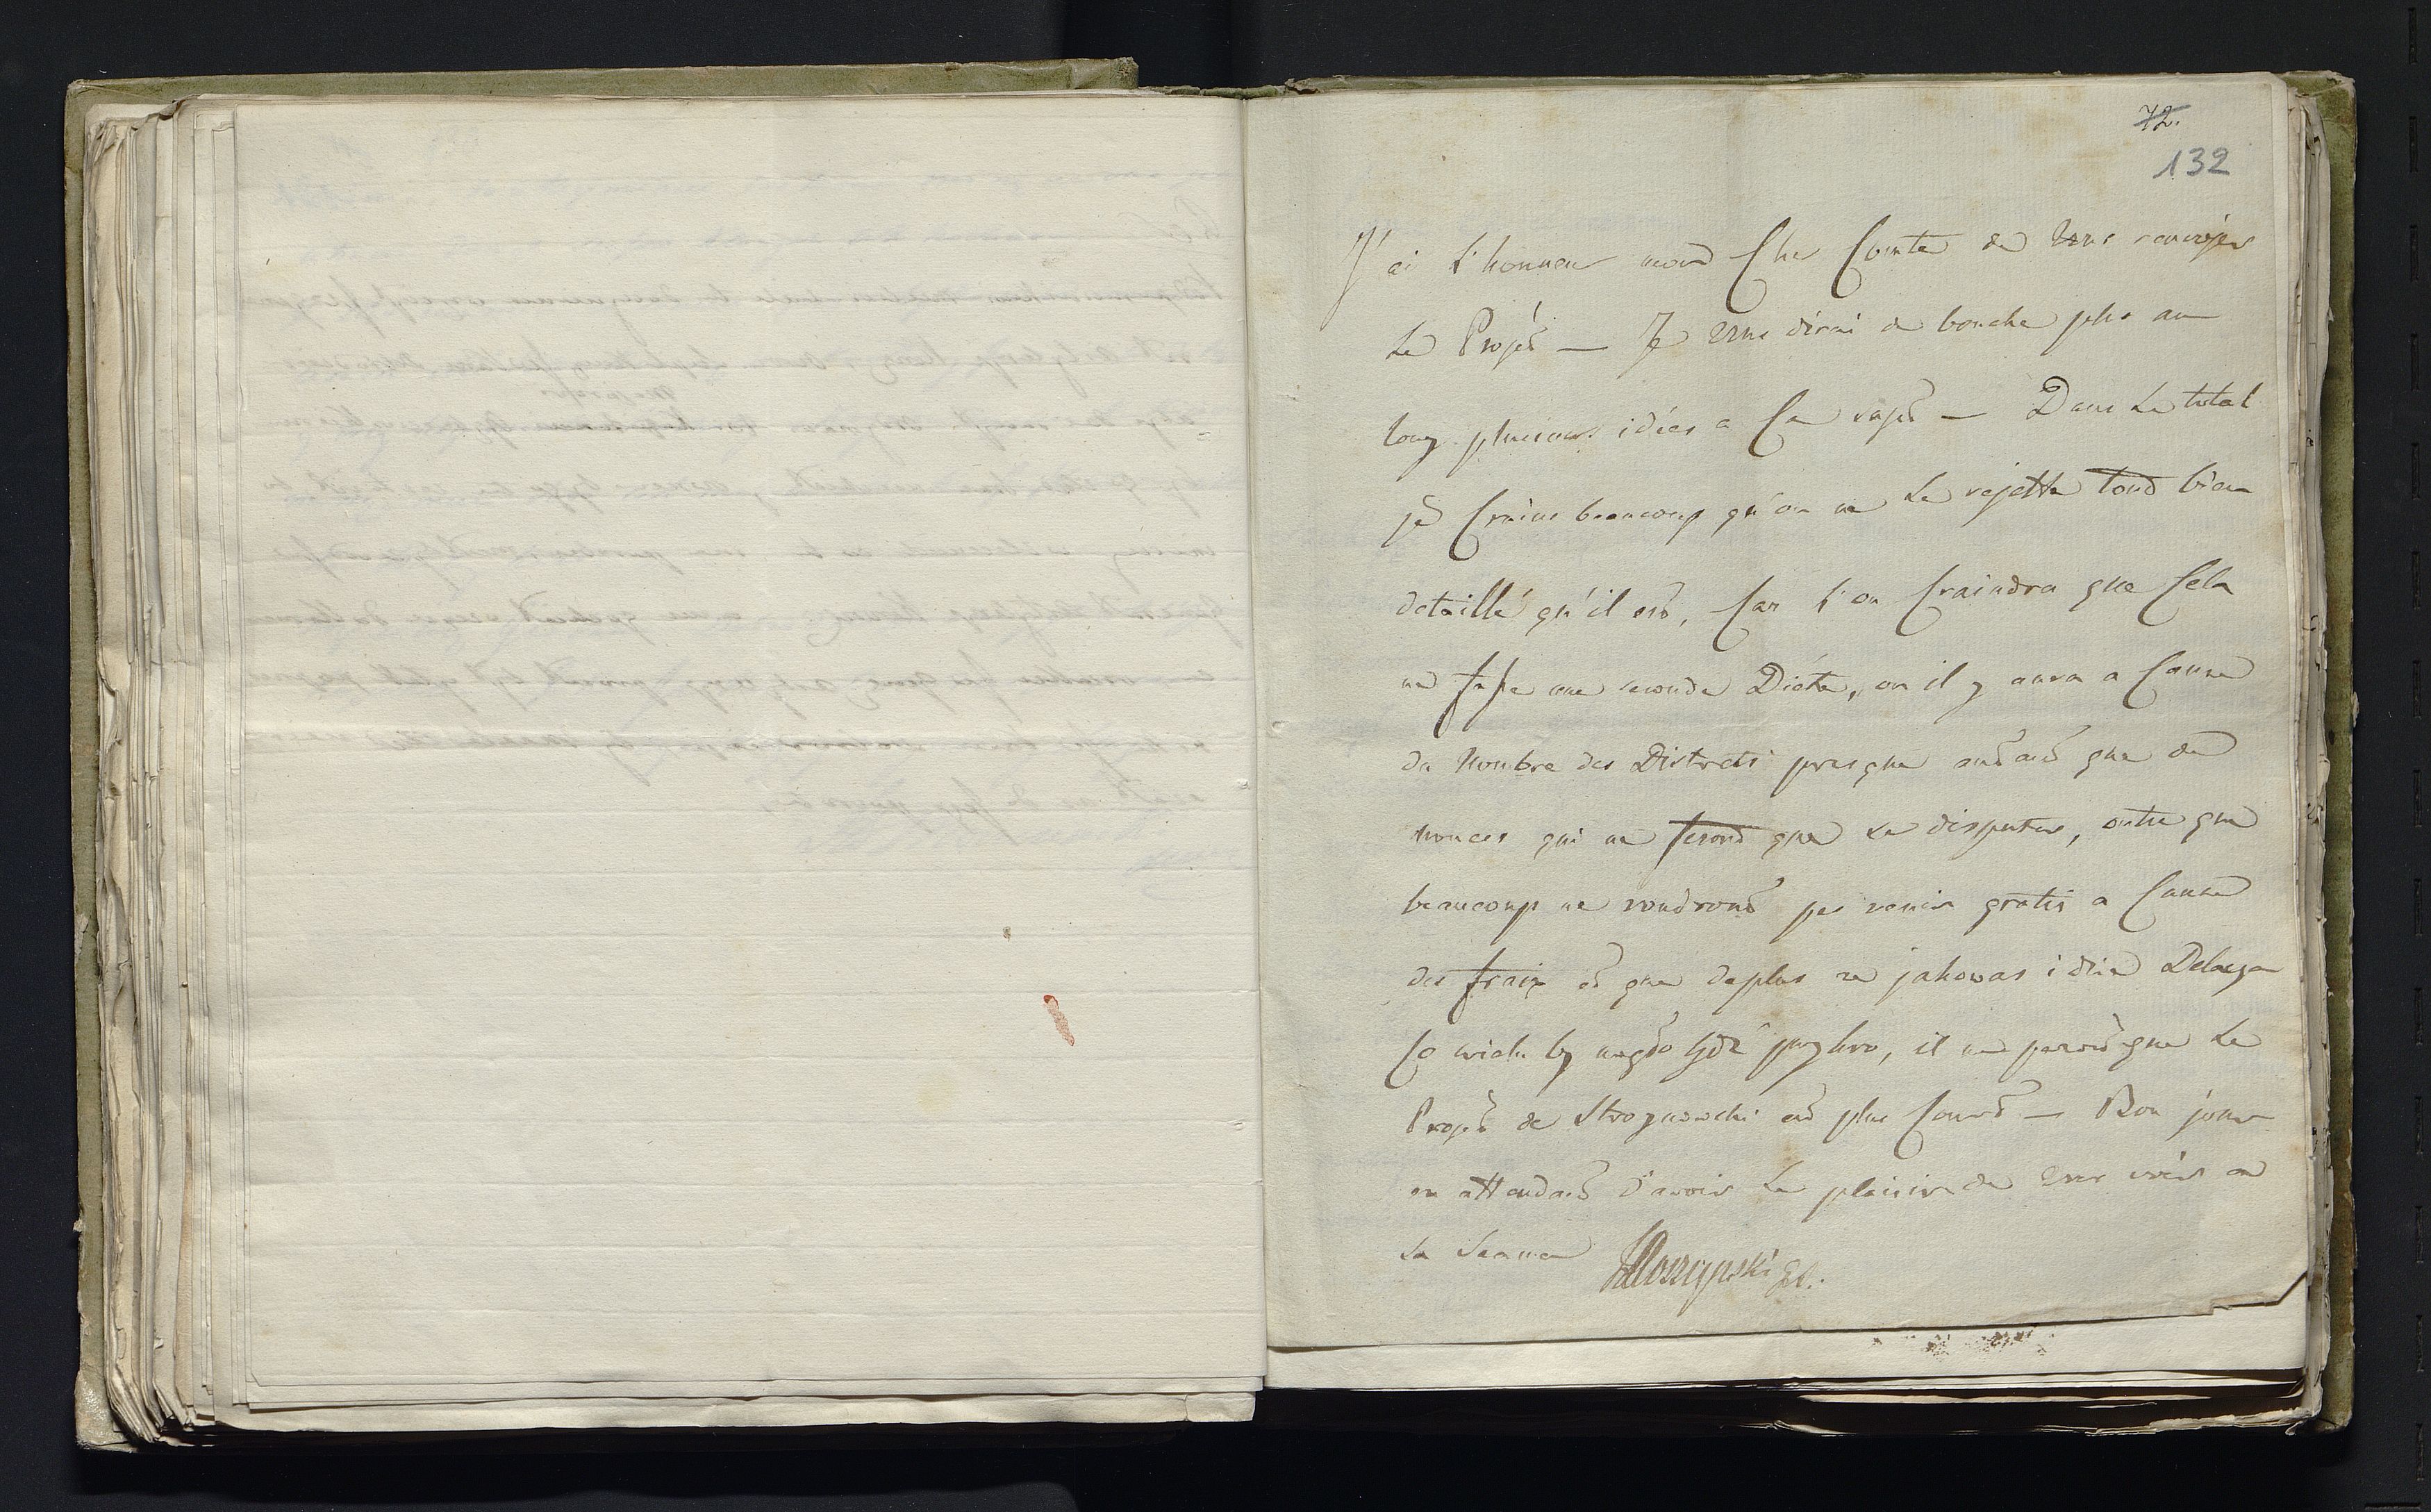 72.
132
J'ai l'honneur mon Cher Comte de vous renvoyer
le Projet — Je vous dirai de bouche plus au
long plusieurs idées a Ce sujet — Dans le total
je Crains beaucoup qu'on ne le rejette tout bien
detaillé qu'il est, Car l'on Craindra que Cela
ne fasse une seconde Diéte, ou il y aura a Cause
du Nombre des Districts presque autant que de
nonces qui ne feront que se disputer, outre que
beaucoup ne voudront pas venir gratis a Cause
des fraix et que deplus ze jakowas idzie Delega
Co wielu by mogło bydź przykro, il me paroit que le
Projet de Stroynowski est plus Court — Bon jour
en attendant d'avoir le plaisir de vous voir a
la Seance Moszynski